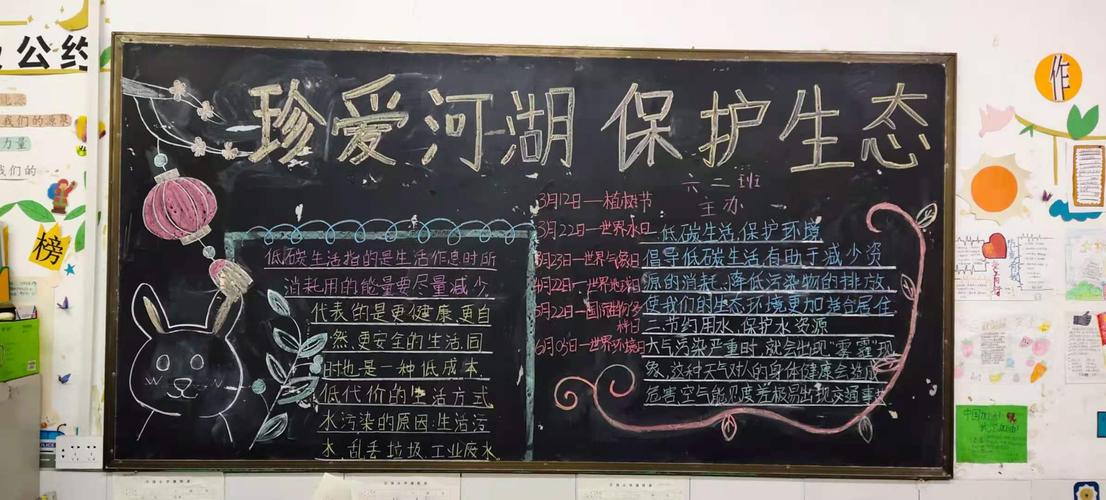 公约
珍爱河湖 保护生态
六二班
主办
低碳生活指的是生活作息时所
消耗用的能量要尽量减少
代表的是更健康、更自
然、更安全的生活,同
时也是一种低成本、
低代价的生活方式
水污染的原因:生活污
水、乱丢垃圾、工业废水
3月12日—植树节
3月22日—世界水日
3月23日—世界气象日
4月22日—世界地球日
5月22日—国际生物多
样日
6月05日—世界环境日
一、低碳生活,保护环境
倡导低碳生活,有助于减少资
源的消耗、降低污染物的排放,
使我们的生态环境更加适合居住
二、节约用水、保护水资源
大气污染严重时,就会出现“雾霾”现
象,这种天气对人的身体健康会造成
危害,空气能见度差极易出现交通事
榜
作
力量
我们的